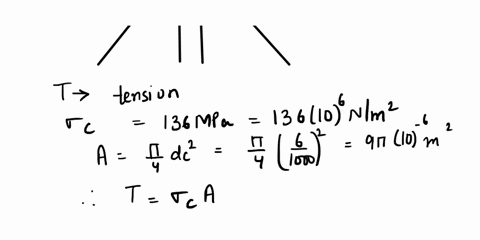 T → tension
σc = 136 MPa = 136(10)^6 N/m^2
A = π/4 dc^2 = π/4 (6/1000)^2 = 9π(10)^-6 m^2
∴ T = σc A